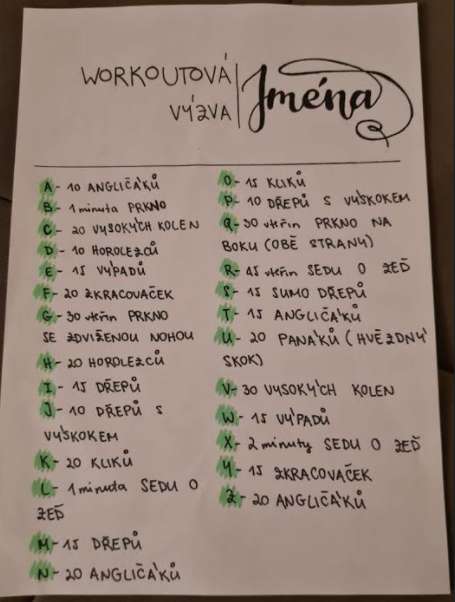 WORKOUTOVÁ
VÝZVA
Jména
A - 10 ANGLIČÁKŮ
B - 1 minuta PRKNO
C - 20 VYSOKÝCH KOLEN
D - 10 HOROLEZCŮ
E - 15 VÝPADŮ
F - 20 ZKRACOVAČEK
G - 30 vteřin PRKNO
SE ZDVIŽENOU NOHOU
H - 20 HOROLEZCŮ
I - 15 DŘEPŮ
J - 10 DŘEPŮ S
VÝSKOKEM
K - 20 KLIKŮ
L - 1 minuta SEDU O
ZEĎ
M - 15 DŘEPŮ
N - 20 ANGLIČÁKŮ
O - 15 KLIKŮ
P - 10 DŘEPŮ S VÝSKOKEM
Q - 30 vteřin PRKNO NA
BOKU (OBĚ STRANY)
R - 45 vteřin SEDU O ZEĎ
S - 15 SUMO DŘEPŮ
T - 15 ANGLIČÁKŮ
U - 20 PANÁKŮ (HVĚZDNÝ
SKOK)
V - 30 VYSOKÝCH KOLEN
W - 15 VÝPADŮ
X - 2 minuty SEDU O ZEĎ
Y - 15 ZKRACOVAČEK
Z - 20 ANGLIČÁKŮ